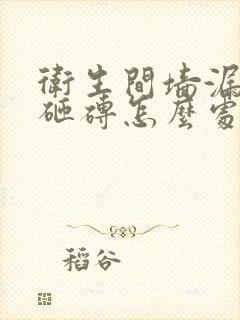 衛生間墻漏
砸磚怎麼處
稻谷